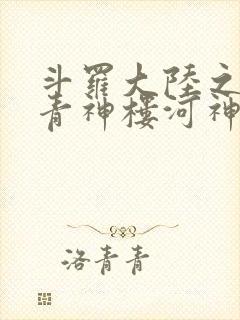 斗羅大陸之
青神樓河神
洛青青